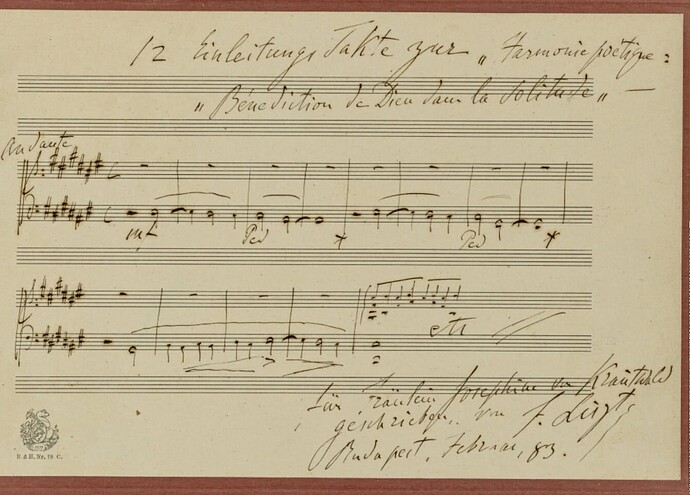 12 Einleitungs Takte zur „Harmonie poëtique:
„Bénédiction de Dieu dans la Solitude„ —
Andante
mf Ped * Ped *
etc
für Fräulein Josephine von Krautwald
geschrieben, von F. Liszt
Budapest, Februar, 83.
B & H. Nr. 18 C.